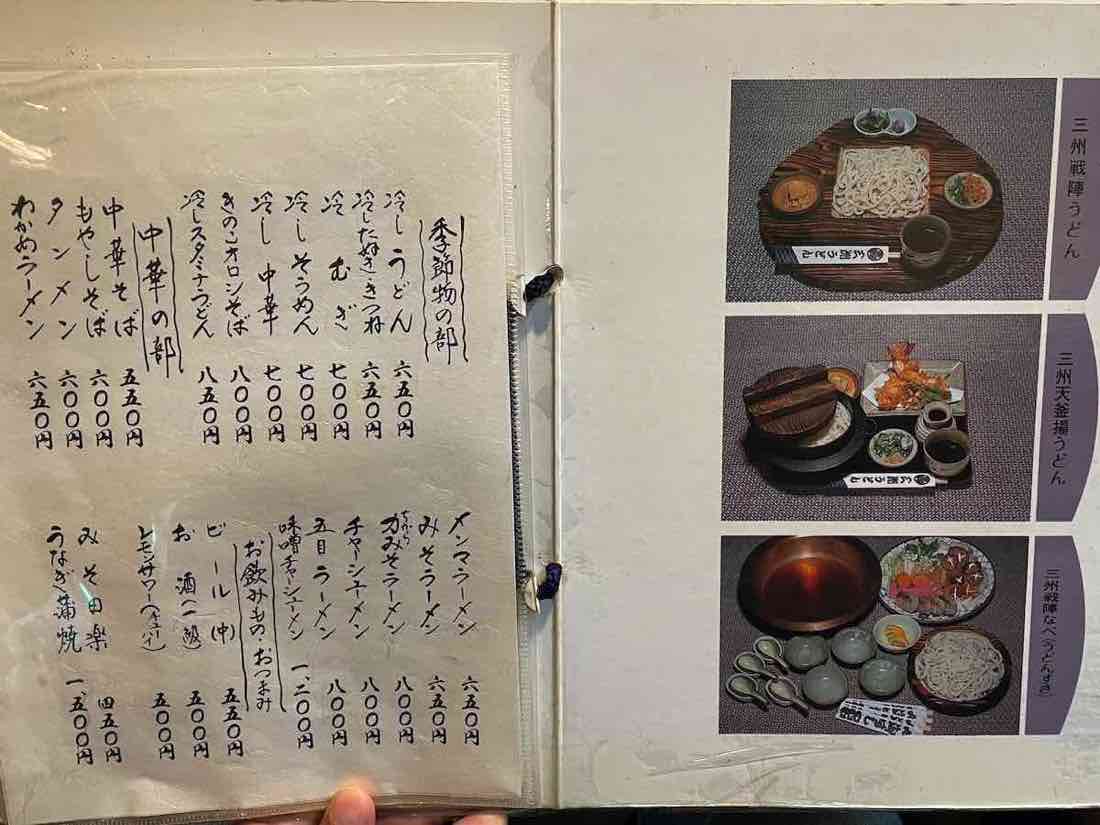 三州戦陣うどん
三州天釜揚うどん
三州戦陣なべ(うどんすき)
季節物の部
冷しうどん 六五〇円
冷したぬき・きつね 六五〇円
冷むぎ 七〇〇円
冷しそうめん 七〇〇円
冷し中華 七〇〇円
きのこオロシそば 八〇〇円
冷しスタミナうどん 八五〇円
中華の部
中華そば 五五〇円
もやしそば 六〇〇円
タンメン 六〇〇円
わかめラーメン 六五〇円
メンマラーメン 六五〇円
みそラーメン 六五〇円
力みそラーメン 八〇〇円
チャーシューメン 八〇〇円
五目ラーメン 八〇〇円
味噌チャーシューメン 一、二〇〇円
お飲みもの、おつまみ
ビール(中) 五五〇円
お酒(一級) 五〇〇円
レモンサワー(チューハイ) 五〇〇円
みそ田楽 四五〇円
うなぎ蒲焼 一、五〇〇円